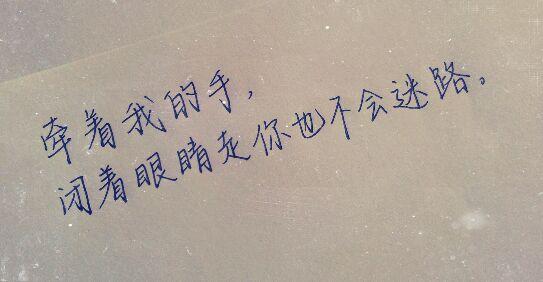 牵着我的手，
闭着眼睛走你也不会迷路。